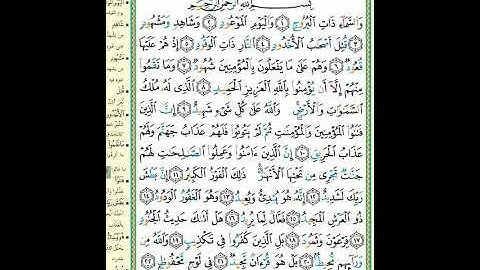 بِسْمِ اللَّهِ الرَّحْمَٰنِ الرَّحِيمِ
وَالسَّمَاءِ ذَاتِ الْبُرُوجِ ١ وَالْيَوْمِ الْمَوْعُودِ ٢ وَشَاهِدٍ وَمَشْهُودٍ
٣ قُتِلَ أَصْحَابُ الْأُخْدُودِ ٤ النَّارِ ذَاتِ الْوَقُودِ ٥ إِذْ هُمْ عَلَيْهَا
قُعُودٌ ٦ وَهُمْ عَلَىٰ مَا يَفْعَلُونَ بِالْمُؤْمِنِينَ شُهُودٌ ٧ وَمَا نَقَمُوا
مِنْهُمْ إِلَّا أَن يُؤْمِنُوا بِاللَّهِ الْعَزِيزِ الْحَمِيدِ ٨ الَّذِي لَهُ مُلْكُ
السَّمَاوَاتِ وَالْأَرْضِ وَاللَّهُ عَلَىٰ كُلِّ شَيْءٍ شَهِيدٌ ٩ إِنَّ الَّذِينَ
فَتَنُوا الْمُؤْمِنِينَ وَالْمُؤْمِنَاتِ ثُمَّ لَمْ يَتُوبُوا فَلَهُمْ عَذَابُ جَهَنَّمَ وَلَهُمْ
عَذَابُ الْحَرِيقِ ١٠ إِنَّ الَّذِينَ آمَنُوا وَعَمِلُوا الصَّالِحَاتِ لَهُمْ
جَنَّاتٌ تَجْرِي مِن تَحْتِهَا الْأَنْهَارُ ذَٰلِكَ الْفَوْزُ الْكَبِيرُ ١١ إِنَّ بَطْشَ
رَبِّكَ لَشَدِيدٌ ١٢ إِنَّهُ هُوَ يُبْدِئُ وَيُعِيدُ ١٣ وَهُوَ الْغَفُورُ الْوَدُودُ ١٤
ذُو الْعَرْشِ الْمَجِيدُ ١٥ فَعَّالٌ لِّمَا يُرِيدُ ١٦ هَلْ أَتَاكَ حَدِيثُ الْجُنُودِ
١٧ فِرْعَوْنَ وَثَمُودَ ١٨ بَلِ الَّذِينَ كَفَرُوا فِي تَكْذِيبٍ ١٩ وَاللَّهُ مِن
وَرَائِهِم مُّحِيطٌ ٢٠ بَلْ هُوَ قُرْآنٌ مَّجِيدٌ ٢١ فِي لَوْحٍ مَّحْفُوظٍ ٢٢